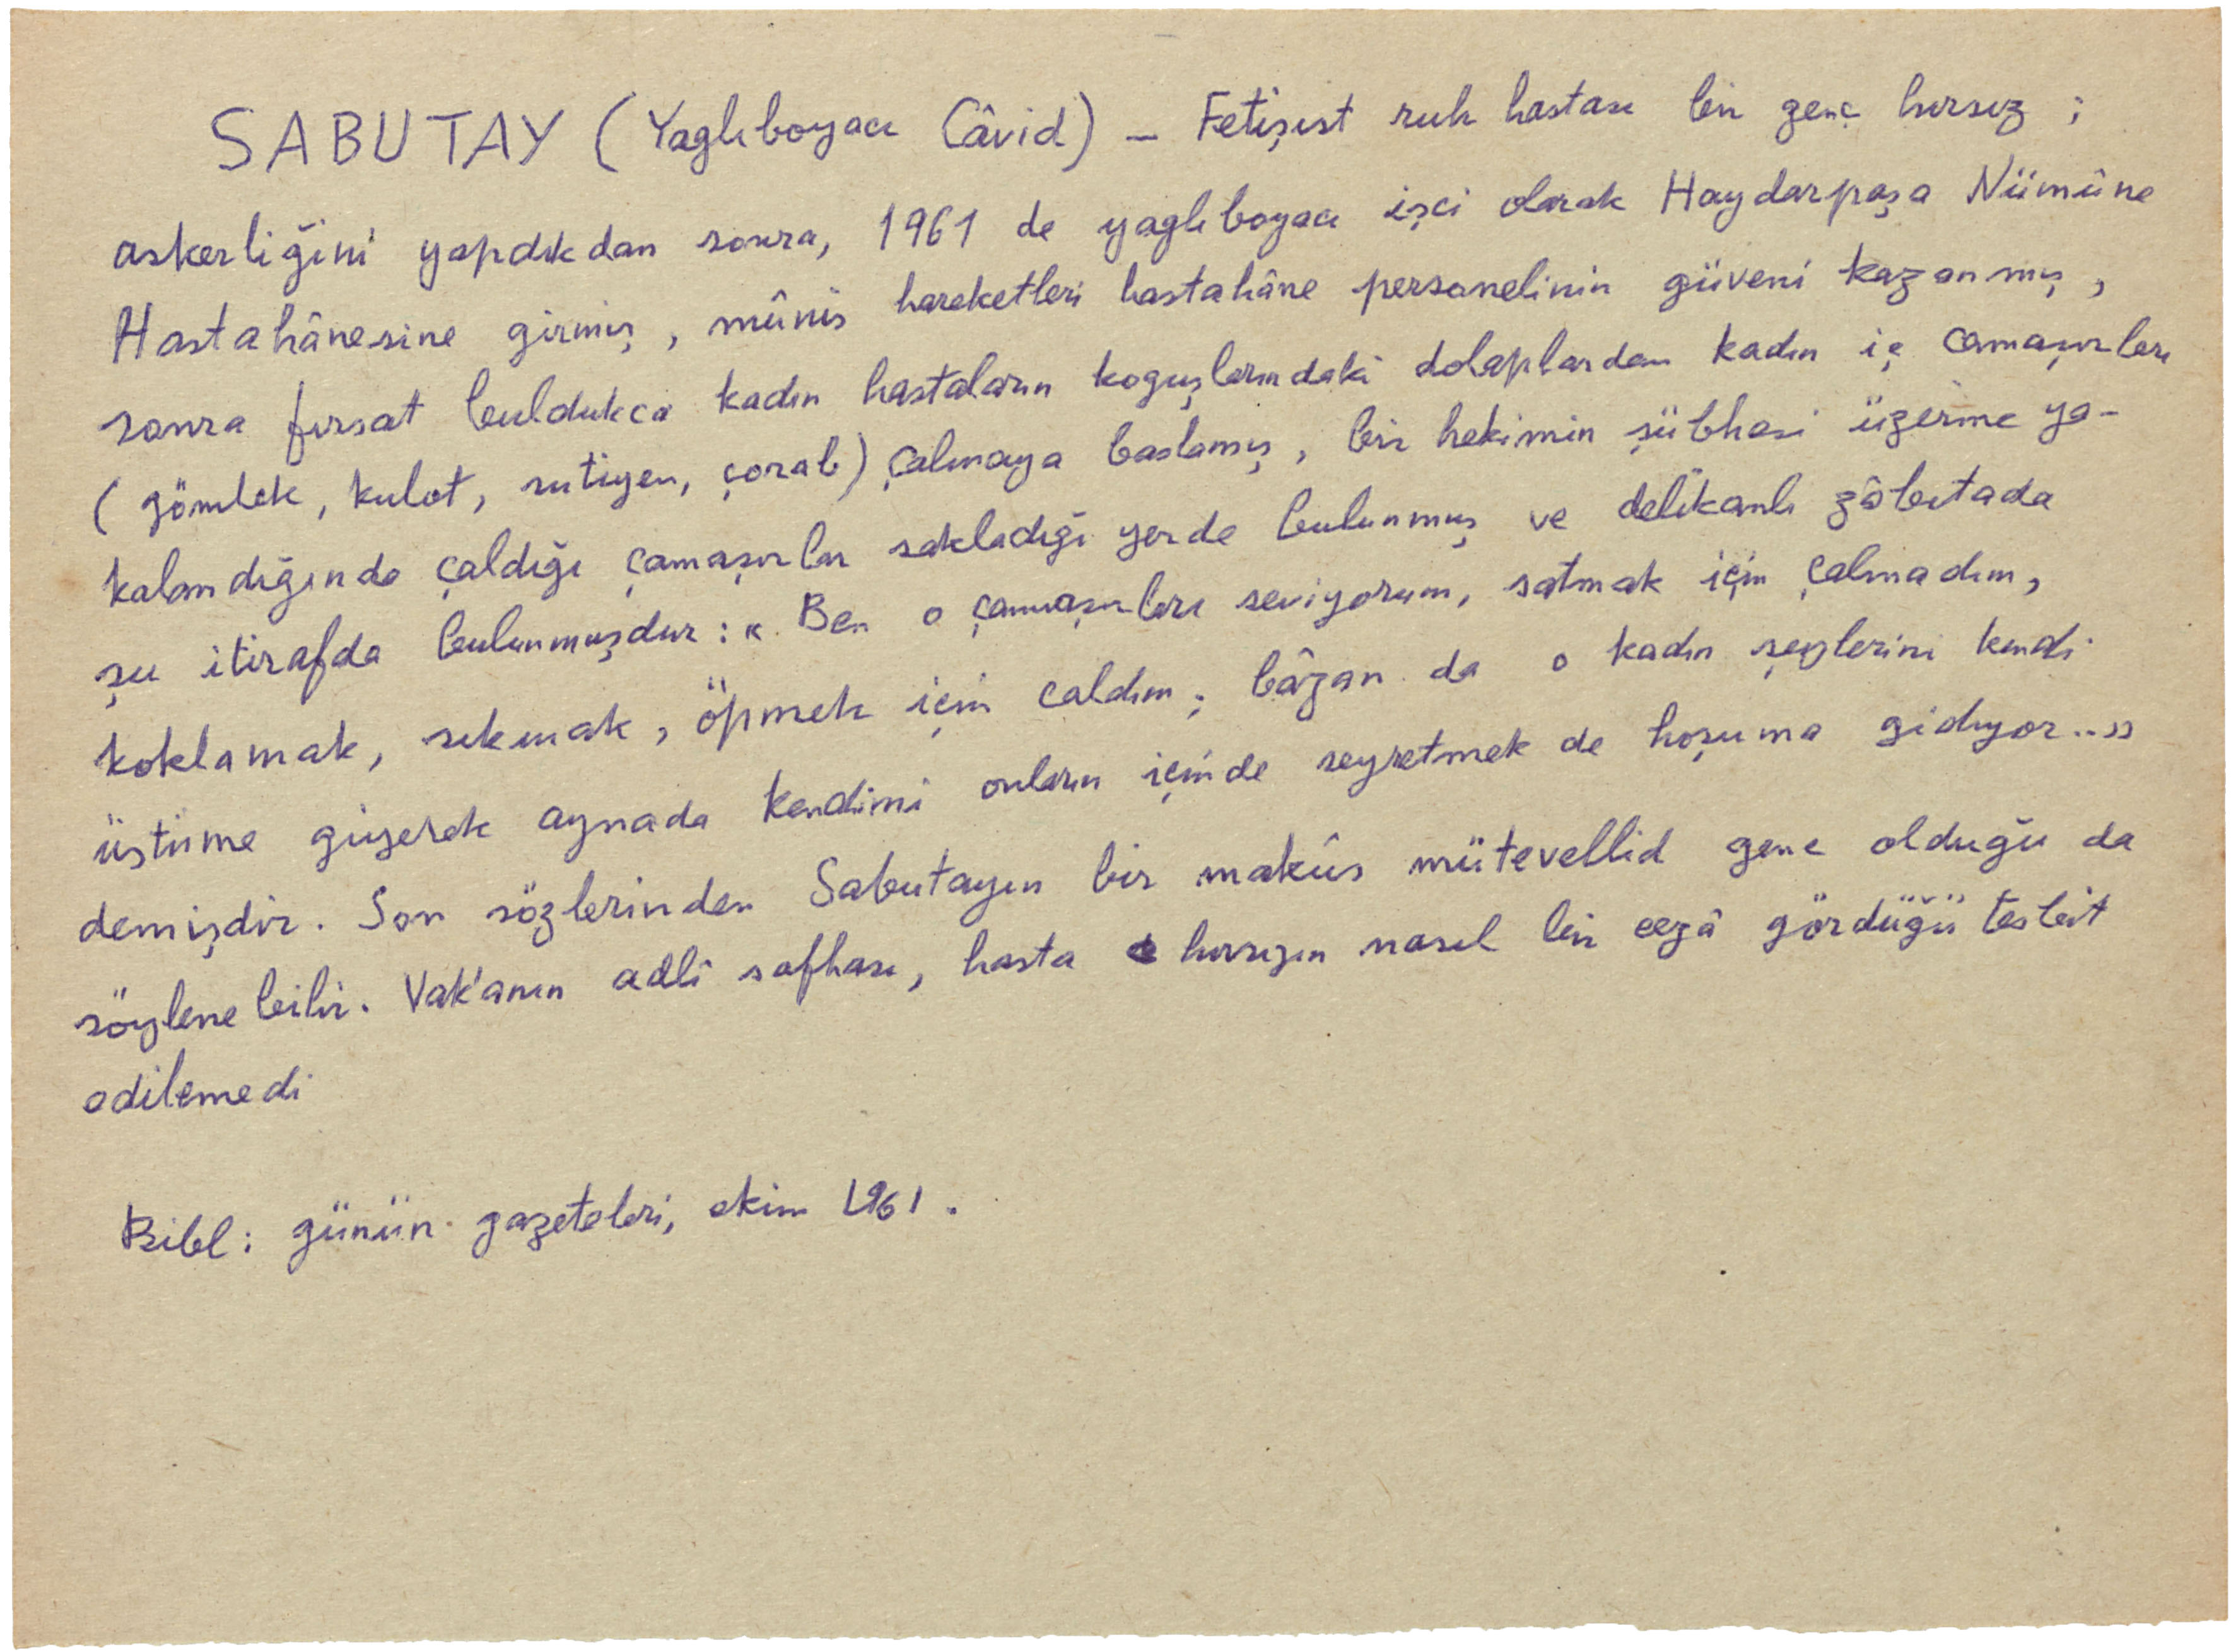 SABUTAY (Yağlıboyacı Câvid) — Fetişist ruh hastası bir genç hırsız ;
askerliğini yapdıkdan sonra, 1961 de yağlıboyacı işci olarak Haydarpaşa Nümûne
Hastahânesine girmiş , mûnis hareketleri hastahâne personelinin güveni kazanmış ,
sonra fırsat buldukca kadın hastaların koguşlarındaki dolaplardan kadın iç camaşırları
( gömlek , kulot , sutiyen, çorab ) çalmaya baslamış , bir hekimin şübhesi üzerine ya-
kalandığında çaldığı çamaşırlar sakladığı yerde bulunmuş ve delikanlı zâbıtada
şu itirafda bulunmuşdur : « Ben o çamaşırları seviyorum, satmak için çalmadım,
koklamak, sıkmak , öpmek için caldım ; bâzan da o kadın şeylerini kendi
üstüme giyerek aynada kendimi onların içinde seyretmek de hoşuma gidiyor.. »
demişdir . Son sözlerinden Sabutayın bir makûs mütevellid genc olduğu da
söylene bilir . Vak'anın adlî safhası, hasta hırsızın nasıl bir cezâ gördüğü tesbit
edilemedi
Bibl : günün gazeteleri, ekim 1961 .